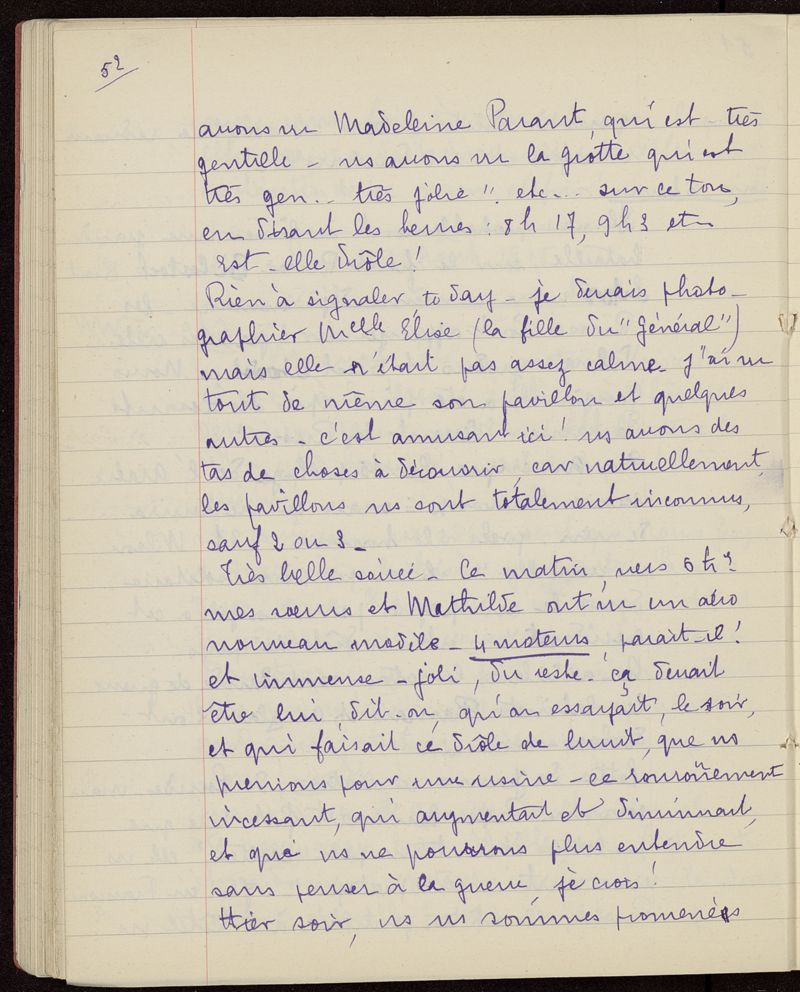 52
avons vu Madeleine Parant, qui est très
gentille - ns avons vu la grotte qui est
très gen.. très jolie" etc... sur ce ton,
en disant les heures : 8h 17, 9h 3 etc
Est-elle drôle !
Rien à signaler to day - je devais photo-
graphier Melle Elise (la fille du "Général")
mais elle n'était pas assez calme. J'ai vu
tout de même son pavillon et quelques
autres - c'est amusant ici ! ns avons des
tas de choses à découvrir, car naturellement,
les pavillons ns sont totalement inconnus,
sauf 2 ou 3 -
Très belle soirée - Ce matin, vers 6 h
mes sœurs et Mathilde ont vu un aéro
nouveau modèle - 4 moteurs, parait-il !
et immense - joli, du reste. ça devait
être lui, dit-on, qu'on essayait, le soir,
et qui faisait ce drôle de bruit, que ns
prenions pour une usine - ce ronronnement
incessant, qui augmentait et diminuait,
et que ns ne pourrons plus entendre
sans penser à la guerre, je crois !
Hier soir, ns ns sommes promenées